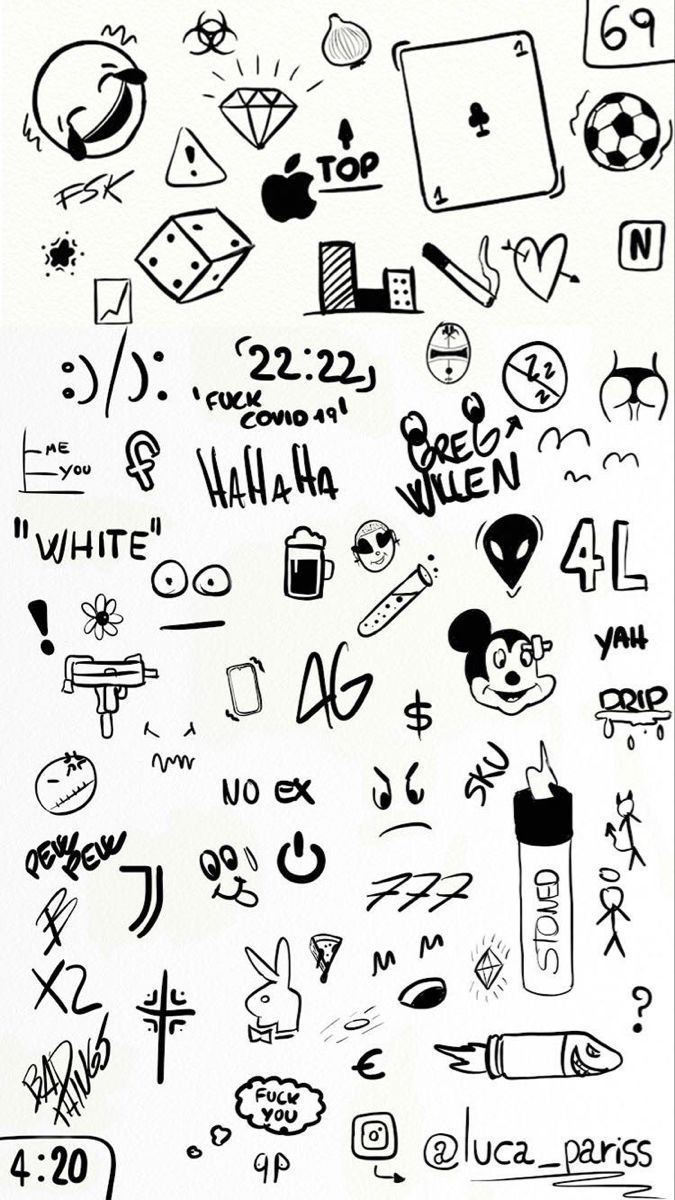 69
1
TOP
FSK
1
N
:)/):
"22:22"
'FUCK
COVID 19'
Z Z
Z
ME
YOU
HAHAHA
GREG
WILLEN
"WHITE"
4L
!
YAH
AG
$
DRIP
NO EX
SKU
PEW
PEW
777
STONED
B
X2
?
BAD
THINGS
€
FUCK
YOU
4:20
9P
@luca_pariss